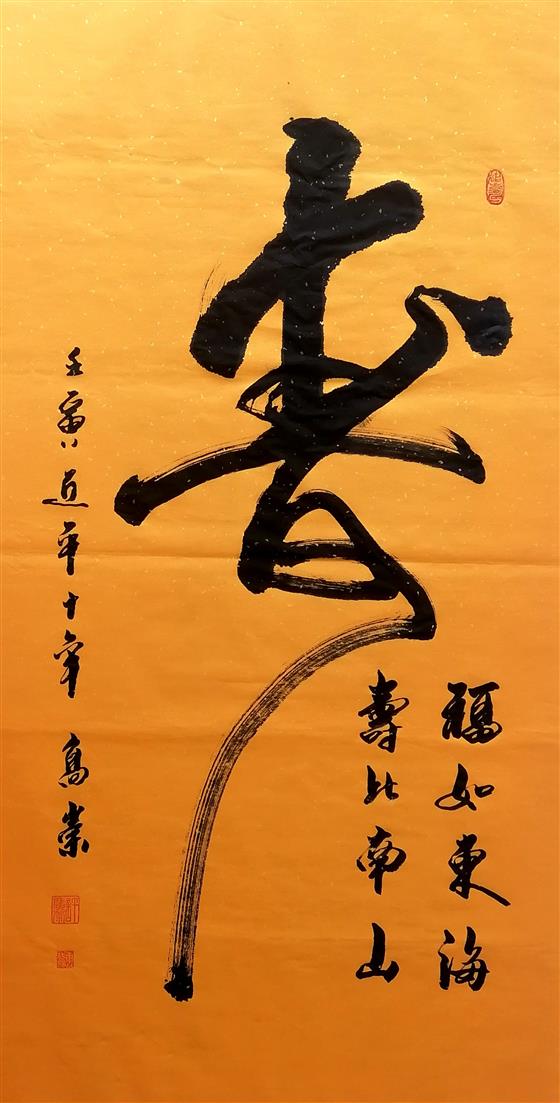 壽
福如東海
壽比南山
壬寅 平十年 高崇